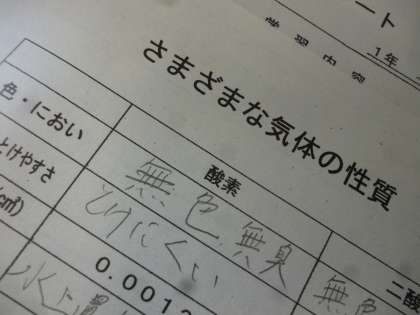 ート
学習内容
1年
さまざまな気体の性質
酸素
二酸
色・におい
無色 無臭
無色
とけやすさ
とけにくい
(cm³)
0.0013
水上